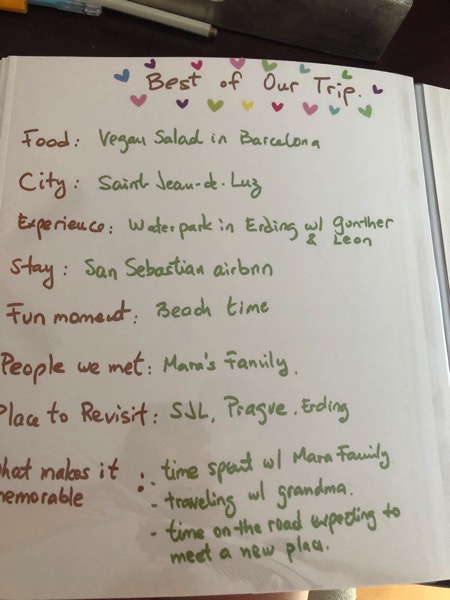 Best of Our Trip.
Food: Vegan Salad in Barcelona
City: Saint-Jean-de-Luz
Experience: Waterpark in Erding w/ Gunther
& Leon
Stay: San Sebastian airbnn
Fun moment: Beach time
People we met: Mara's Family.
Place to Revisit: SJL, Prague, Erding
hat makes it : - time spent w/ Mara Family
memorable - traveling w/ grandma.
- time on the road expecting to
meet a new place.